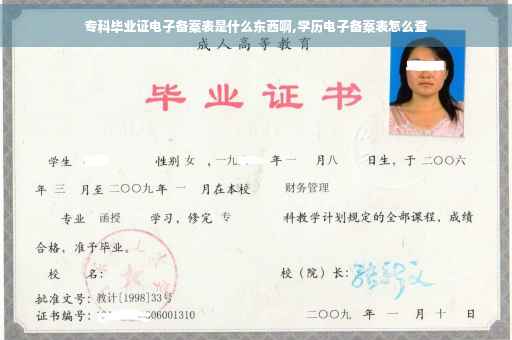 专科毕业证电子备案表是什么东西啊,学历电子备案表怎么查
成人高等教育
毕业证书
学生 性别 女 ,一九 年一 月八 日生,于二〇〇六
年 三 月至二〇〇九年 一 月在本校 财务管理
专业 函授 学习,修完 专 科教学计划规定的全部课程,成绩
合格,准予毕业。
校 名: 校(院)长:
批准文号:教计[1998]33号
证书编号: 06001310 二〇〇九 年 一 月 十 日